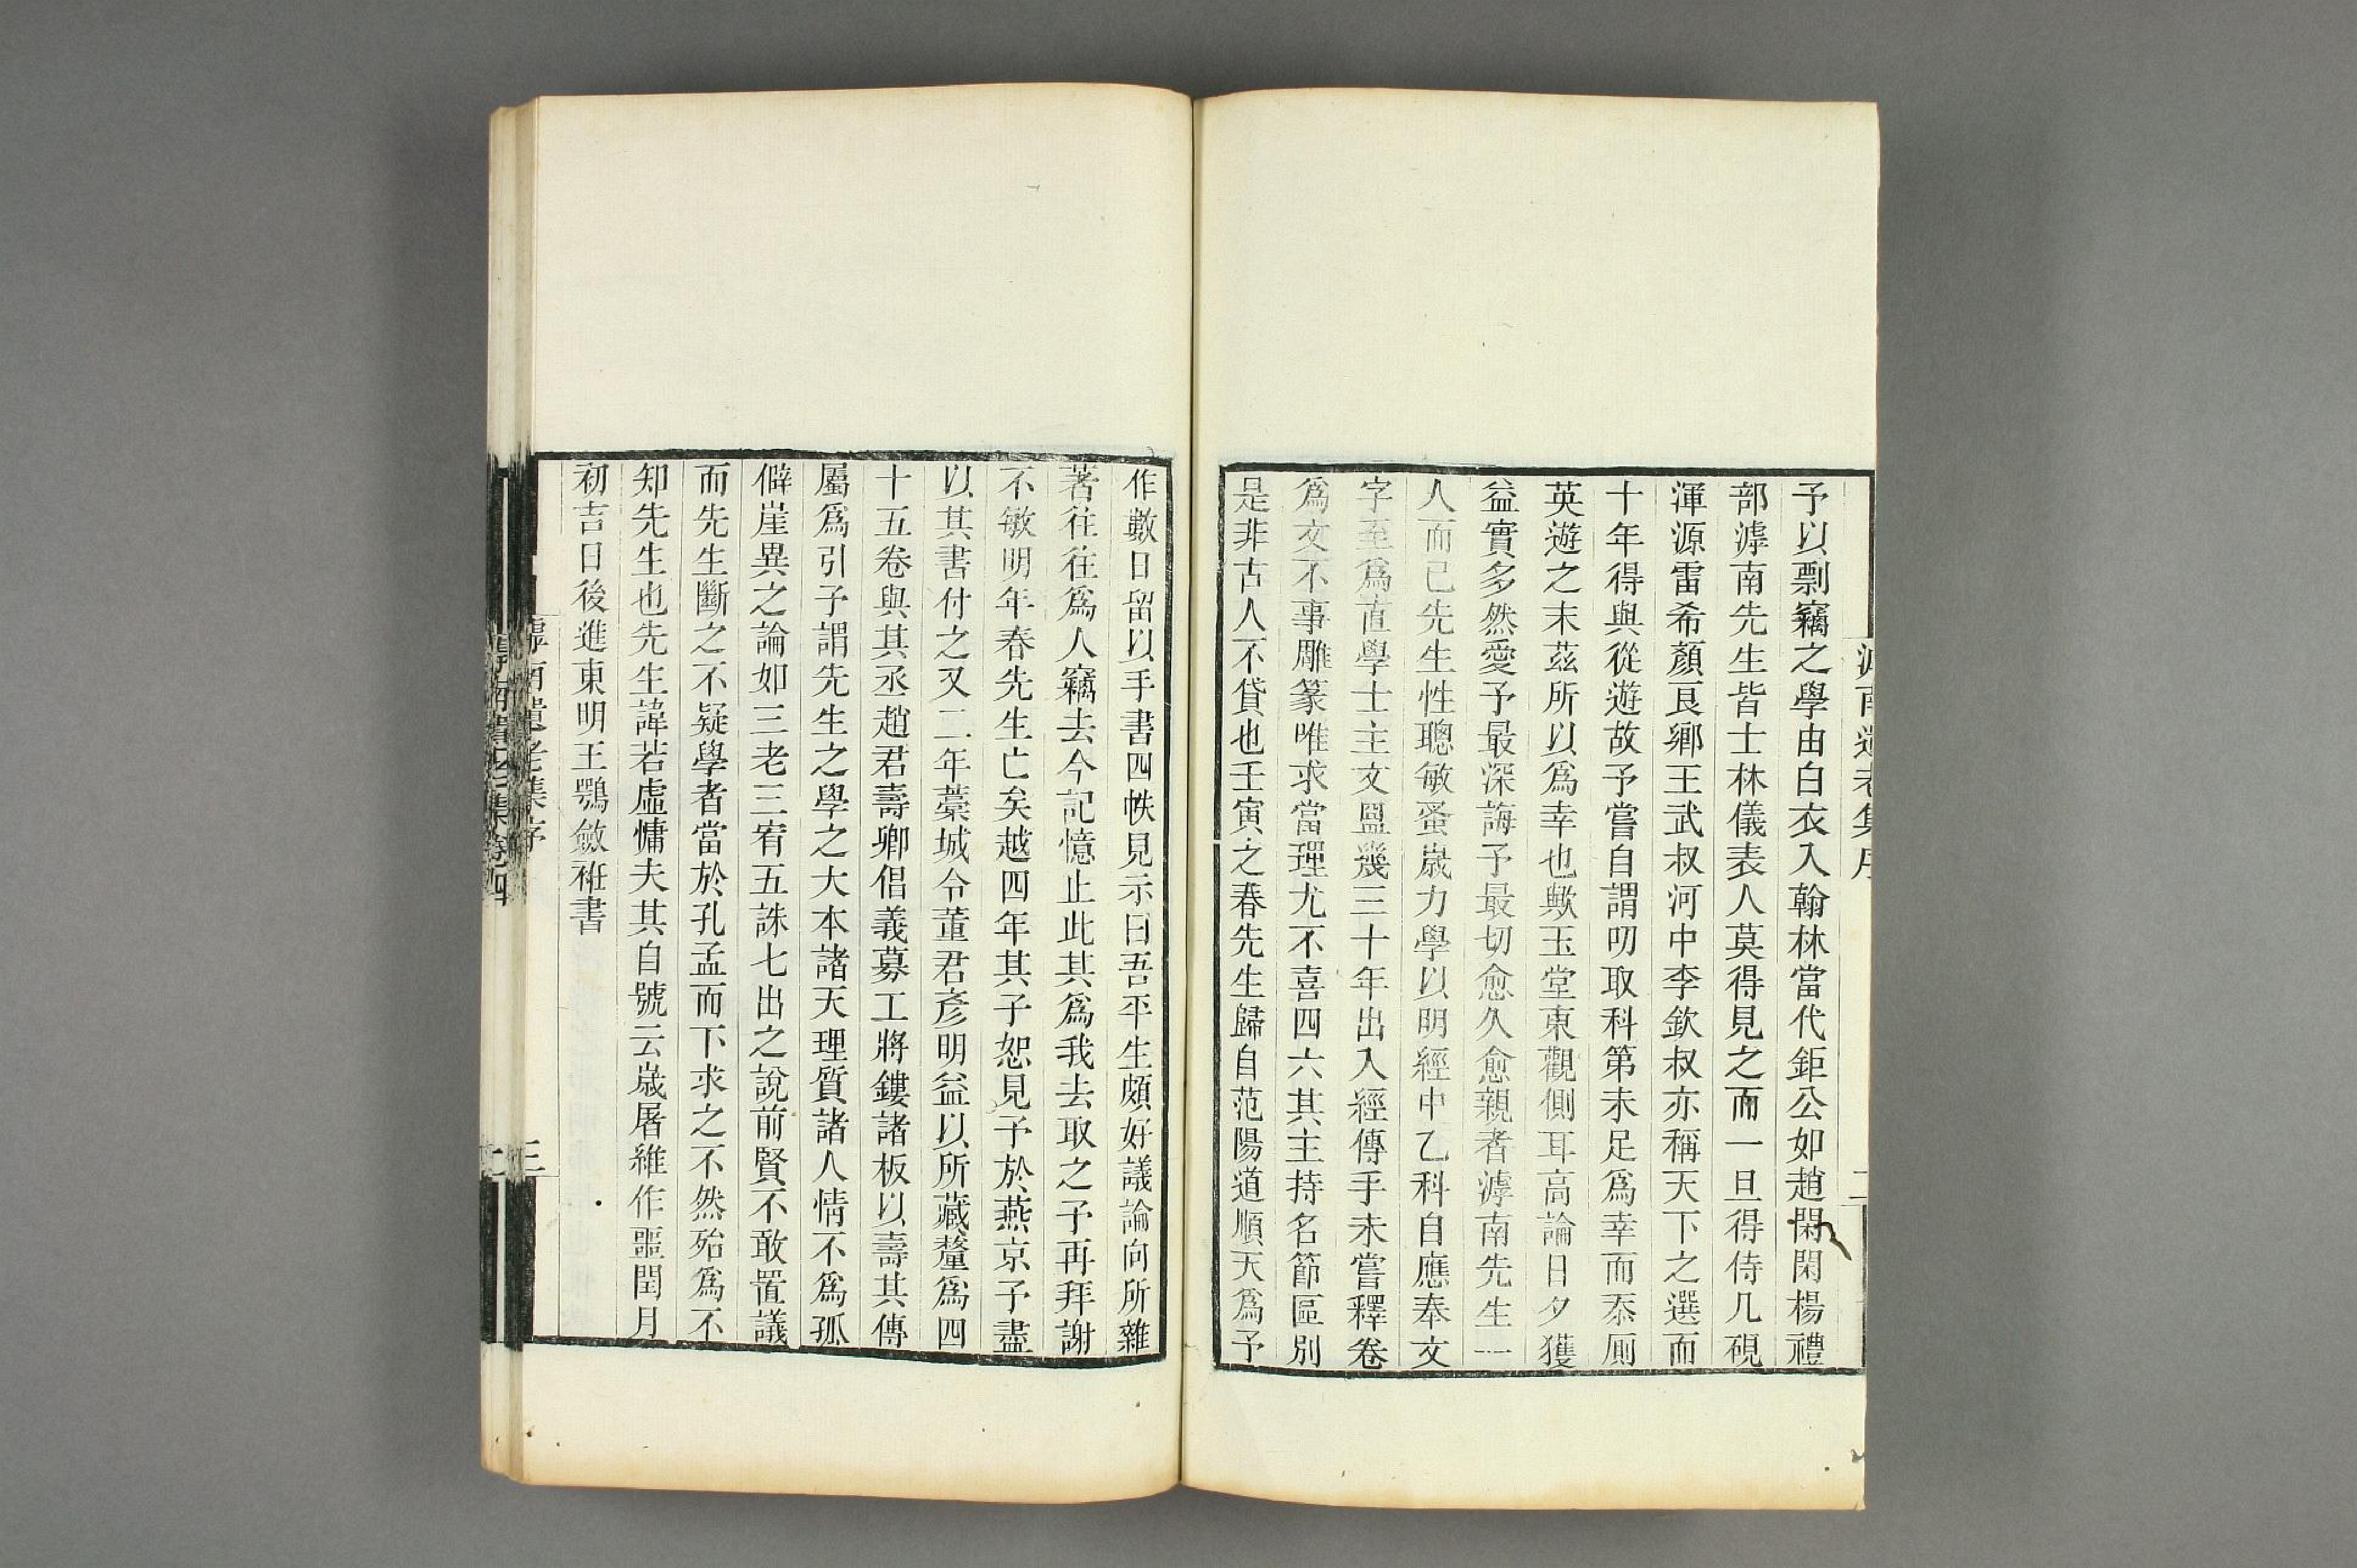 予以剽竊之學由白衣入翰林當代鉅公如趙閑閑楊禮
部滹南先生皆士林儀表人莫得見之而一旦得侍几硯
渾源雷希顏良鄉王武叔河中李欽叔亦稱天下之選而
十年得與從遊故予嘗自謂叨取科第未足爲幸而忝厠
英遊之末茲所以爲幸也歟玉堂東觀側耳高論日夕獲
益實多然愛予最深誨予最切愈久愈親者滹南先生一
人而已先生性聰敏蚤歲力學以明經中乙科自應奉文
字至爲直學士主文盟幾三十年出入經傳手未嘗釋卷
爲文不事雕篆唯求當理尤不喜四六其主持名節區別
是非古人不貸也壬寅之春先生歸自范陽道順天爲予
作數日留以手書四帙見示曰吾平生頗好議論向所雜
著往往爲人竊去今記憶止此其爲我去取之予再拜謝
不敏明年春先生亡矣越四年其子恕見予於燕京予盡
以其書付之又二年藁城令董君彥明益以所藏釐爲四
十五卷與其丞趙君壽卿倡義募工將鏤諸板以壽其傳
屬爲引予謂先生之學之大本諸天理質諸人情不爲孤
僻崖異之論如三老三宥五誅七出之說前賢不敢置議
而先生斷之不疑學者當於孔孟而下求之不然殆爲不
知先生也先生諱若虛慵夫其自號云歲屠維作噩閏月
初吉日後進東明王鶚斂衽書
滹南遺老集序
三